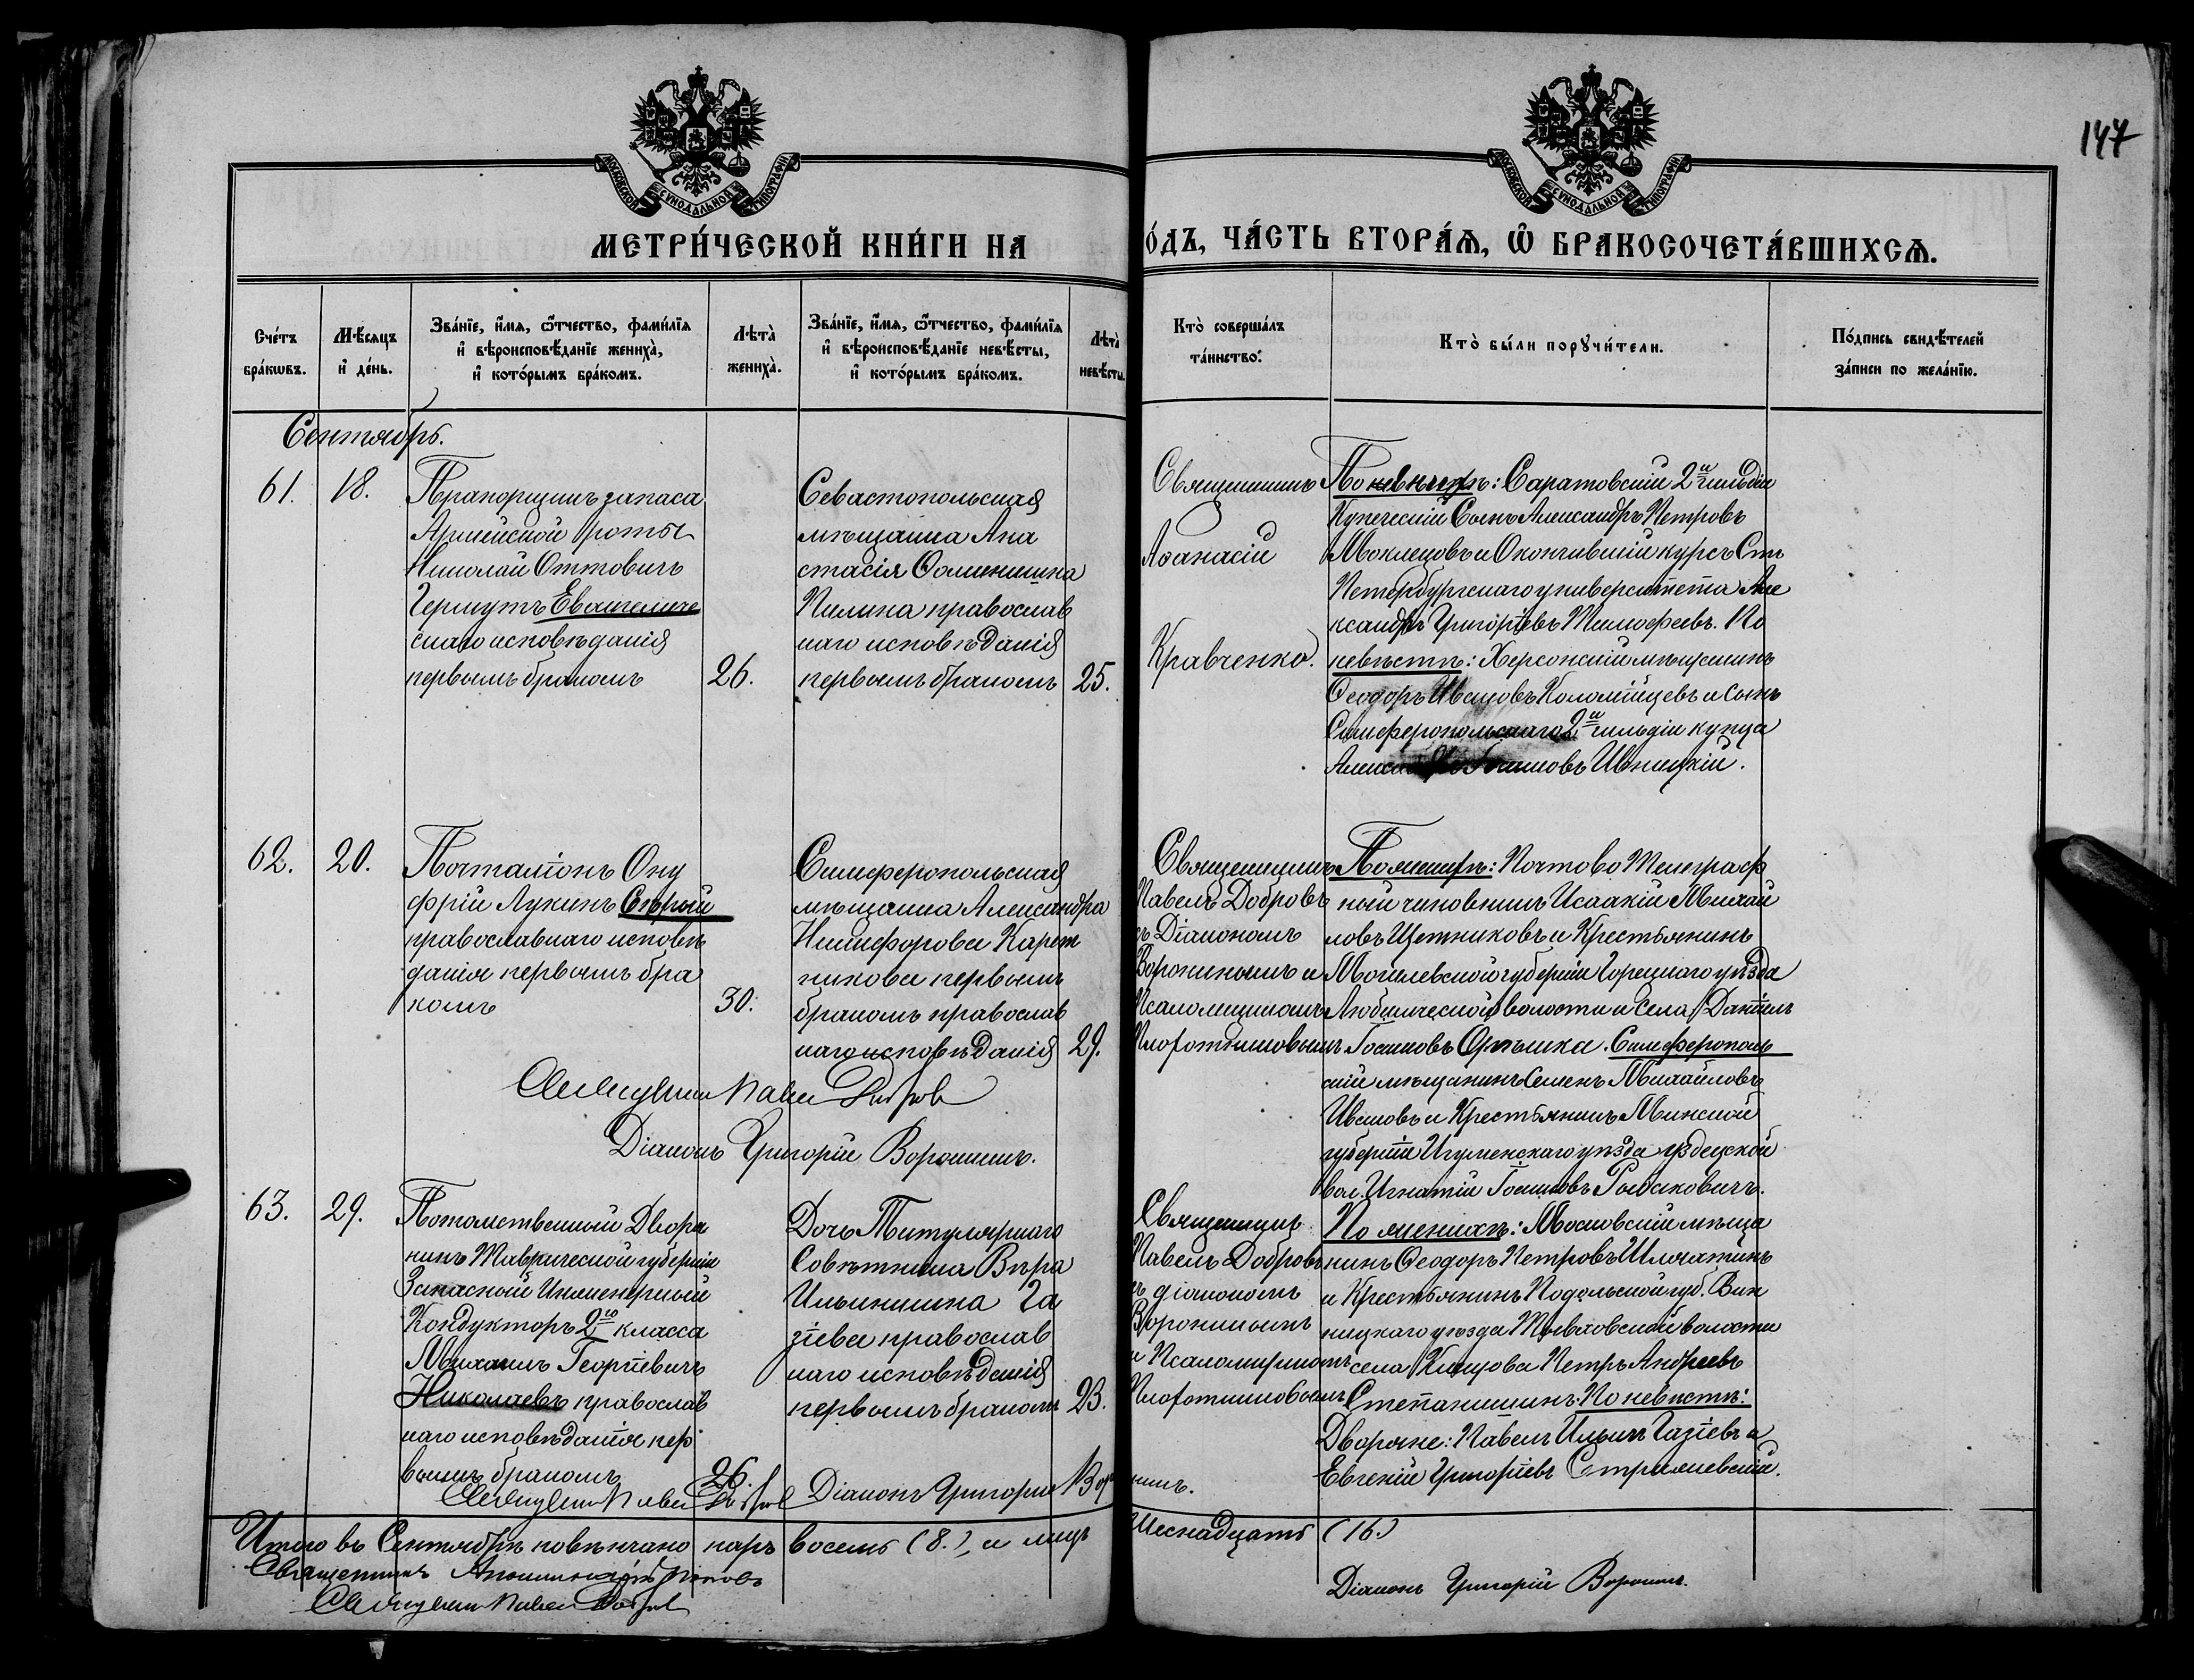 147
МОСКОВСКОЙ СѴНОДАЛЬНОЙ ТИПОГРАФІИ
МОСКОВСКОЙ СѴНОДАЛЬНОЙ ТИПОГРАФІИ
МЕТРИ́ЧЕСКОЙ КНИ́ГИ НА
О́ДЪ, ЧА́СТЬ ВТОРА́Ѧ, Ѡ҆ БРАКОСОЧЕТА́ВШИХСѦ.
Сче́тъ бра́кѡвъ.
Мѣ́сяцъ и҆ де́нь.
Зва́нїе, и҆́мѧ, ѻ҆́тчество, фами́лїѧ
и҆ вѣроисповѣ́данїе жениха̀,
и҆ кото́рымъ бра́комъ.
Лѣта̀ жениха̀.
Зва́нїе, и҆́мѧ, ѻ҆́тчество, фами́лїѧ
и҆ вѣроисповѣ́данїе невѣ́сты,
и҆ кото́рымъ бра́комъ.
Лѣта̀ невѣ́сты
Кто̀ соверша́лъ
та́инство.
Кто̀ бы́ли порꙋчи́тели.
По́дпись свидѣ́телей
за́писи по жела́нїю.
Сентябрь.
61.
18.
Прапорщикъ запаса
Армейской роты
Николай Оттовичъ
Евангеличе
скаго исповѣданія
первымъ бракомъ
26.
Севастопольская
мѣщанка Ана
стасія Ѳоминишна
Пилина православ
наго исповѣданія
первымъ бракомъ
25.
Священникъ
Аѳанасій
Кравченко.
Саратовскій 2й гильдіи
Купеческій Сынъ Александръ Петровъ
и Окончившій курсъ Стъ
Петербургскаго университета Але
ксандръ Григорьевъ Тимофеевъ. По
невѣстѣ: Херсонскій мѣщанинъ
Ѳеодоръ Ивановъ Коломійцевъ и сынъ
Симферопольскаго 2й гильдіи купца
Ивницкій.
62.
20.
Почталіонъ Ону
фрій Лукинъ Сѣрый
православнаго исповѣ
данія первымъ бра
комъ
30.
Симферопольская
мѣщанка Александра
Никифорова Карет
никова первымъ
бракомъ православ
наго исповѣданія
29.
Священникъ
Павелъ Добровъ
съ Діакономъ
Воронинымъ и
Псаломщикомъ
По женихѣ: Почтово Телеграф
ный чиновникъ Исаакій Михай
ловъ Щетниковъ и Крестьянинъ
Могилевской губерніи Горецкаго уѣзда
волости и села Даніилъ
Іоакимовъ Орѣшка. Симферополь
скій мѣщанинъ Семенъ Михайловъ
Ивановъ и Крестьянинъ Минской
губерніи Игуменскаго уѣзда Узденской
вол. Игнатій Іоакимовъ
Священникъ Павелъ Добровъ
Діаконъ Григорій Воронинъ.
63.
29.
Потомственный Дворя
нинъ Таврической губерніи
Запасный Инженерный
Кондукторъ 2го класса
Михаилъ Георгіевичъ
Николаевъ православ
наго исповѣданія пер
вымъ бракомъ
26.
Дочь Титулярнаго
Совѣтника Вѣра
Ильинишна Га
зіева православ
наго исповѣданія
первымъ бракомъ
23.
Священникъ
Павелъ Добровъ
съ діакономъ
Воронинымъ
и Псаломщикомъ
По женихѣ: Московскій мѣща
нинъ Ѳеодоръ Петровъ
и Крестьянинъ Подольской губ. Вин
ницкаго уѣзда волости
села Петръ Андреевъ
Степанишинъ. По невѣстѣ:
Дворяне: Павелъ Ильинъ Газіевъ и
Евгеній Григорьевъ
Священникъ Павелъ Добровъ Діаконъ Григорій Воронинъ.
Итого въ Сентябрѣ повѣнчано паръ восемь (8.), а лицъ шеснадцать (16.)
Священникъ
Священникъ Павелъ Добровъ
Діаконъ Григорій Воронинъ.